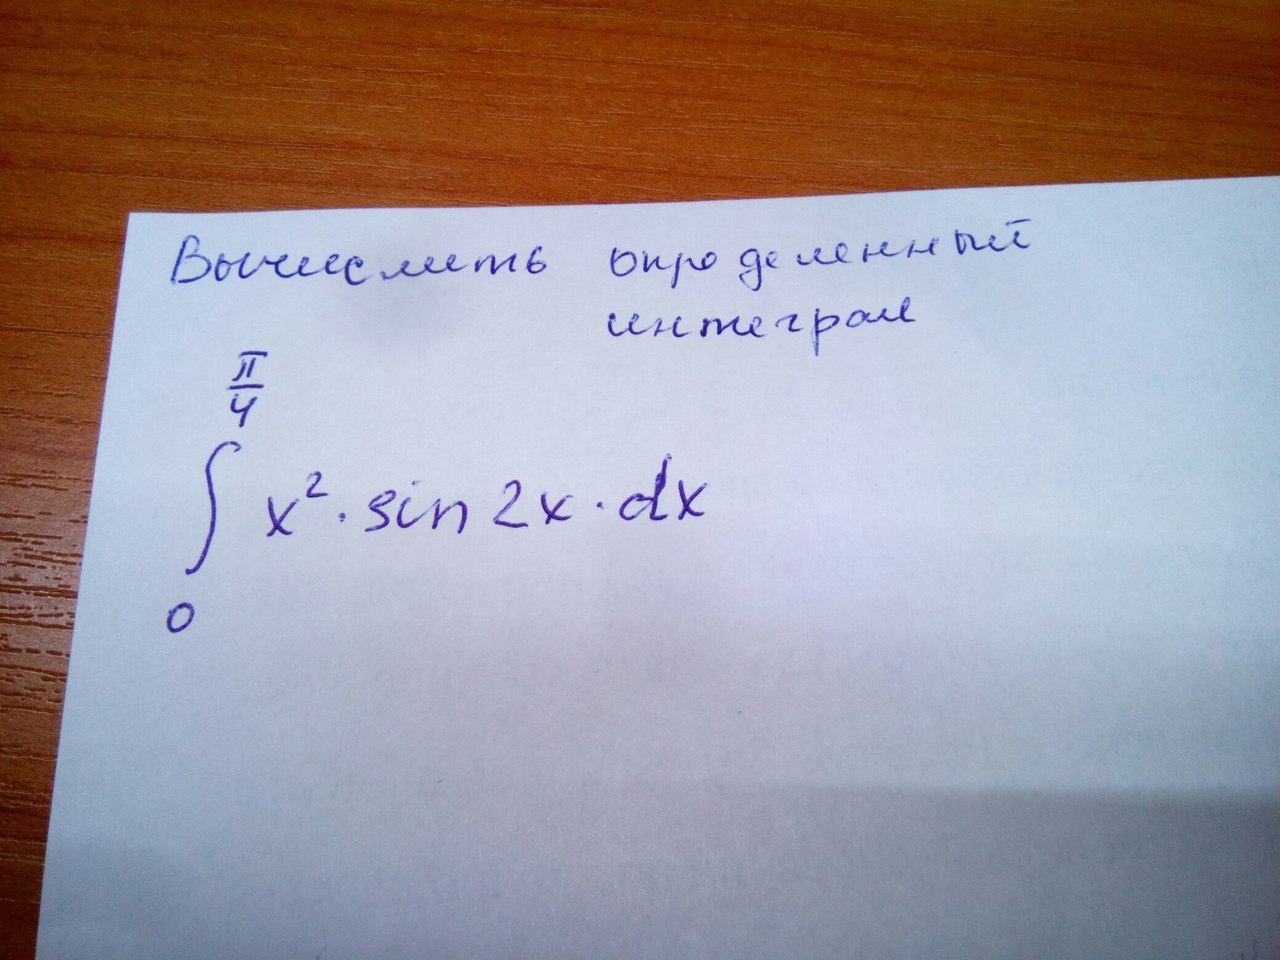 Вычислить определенный
интеграл
π/4
∫ x² · sin 2x · dx
0